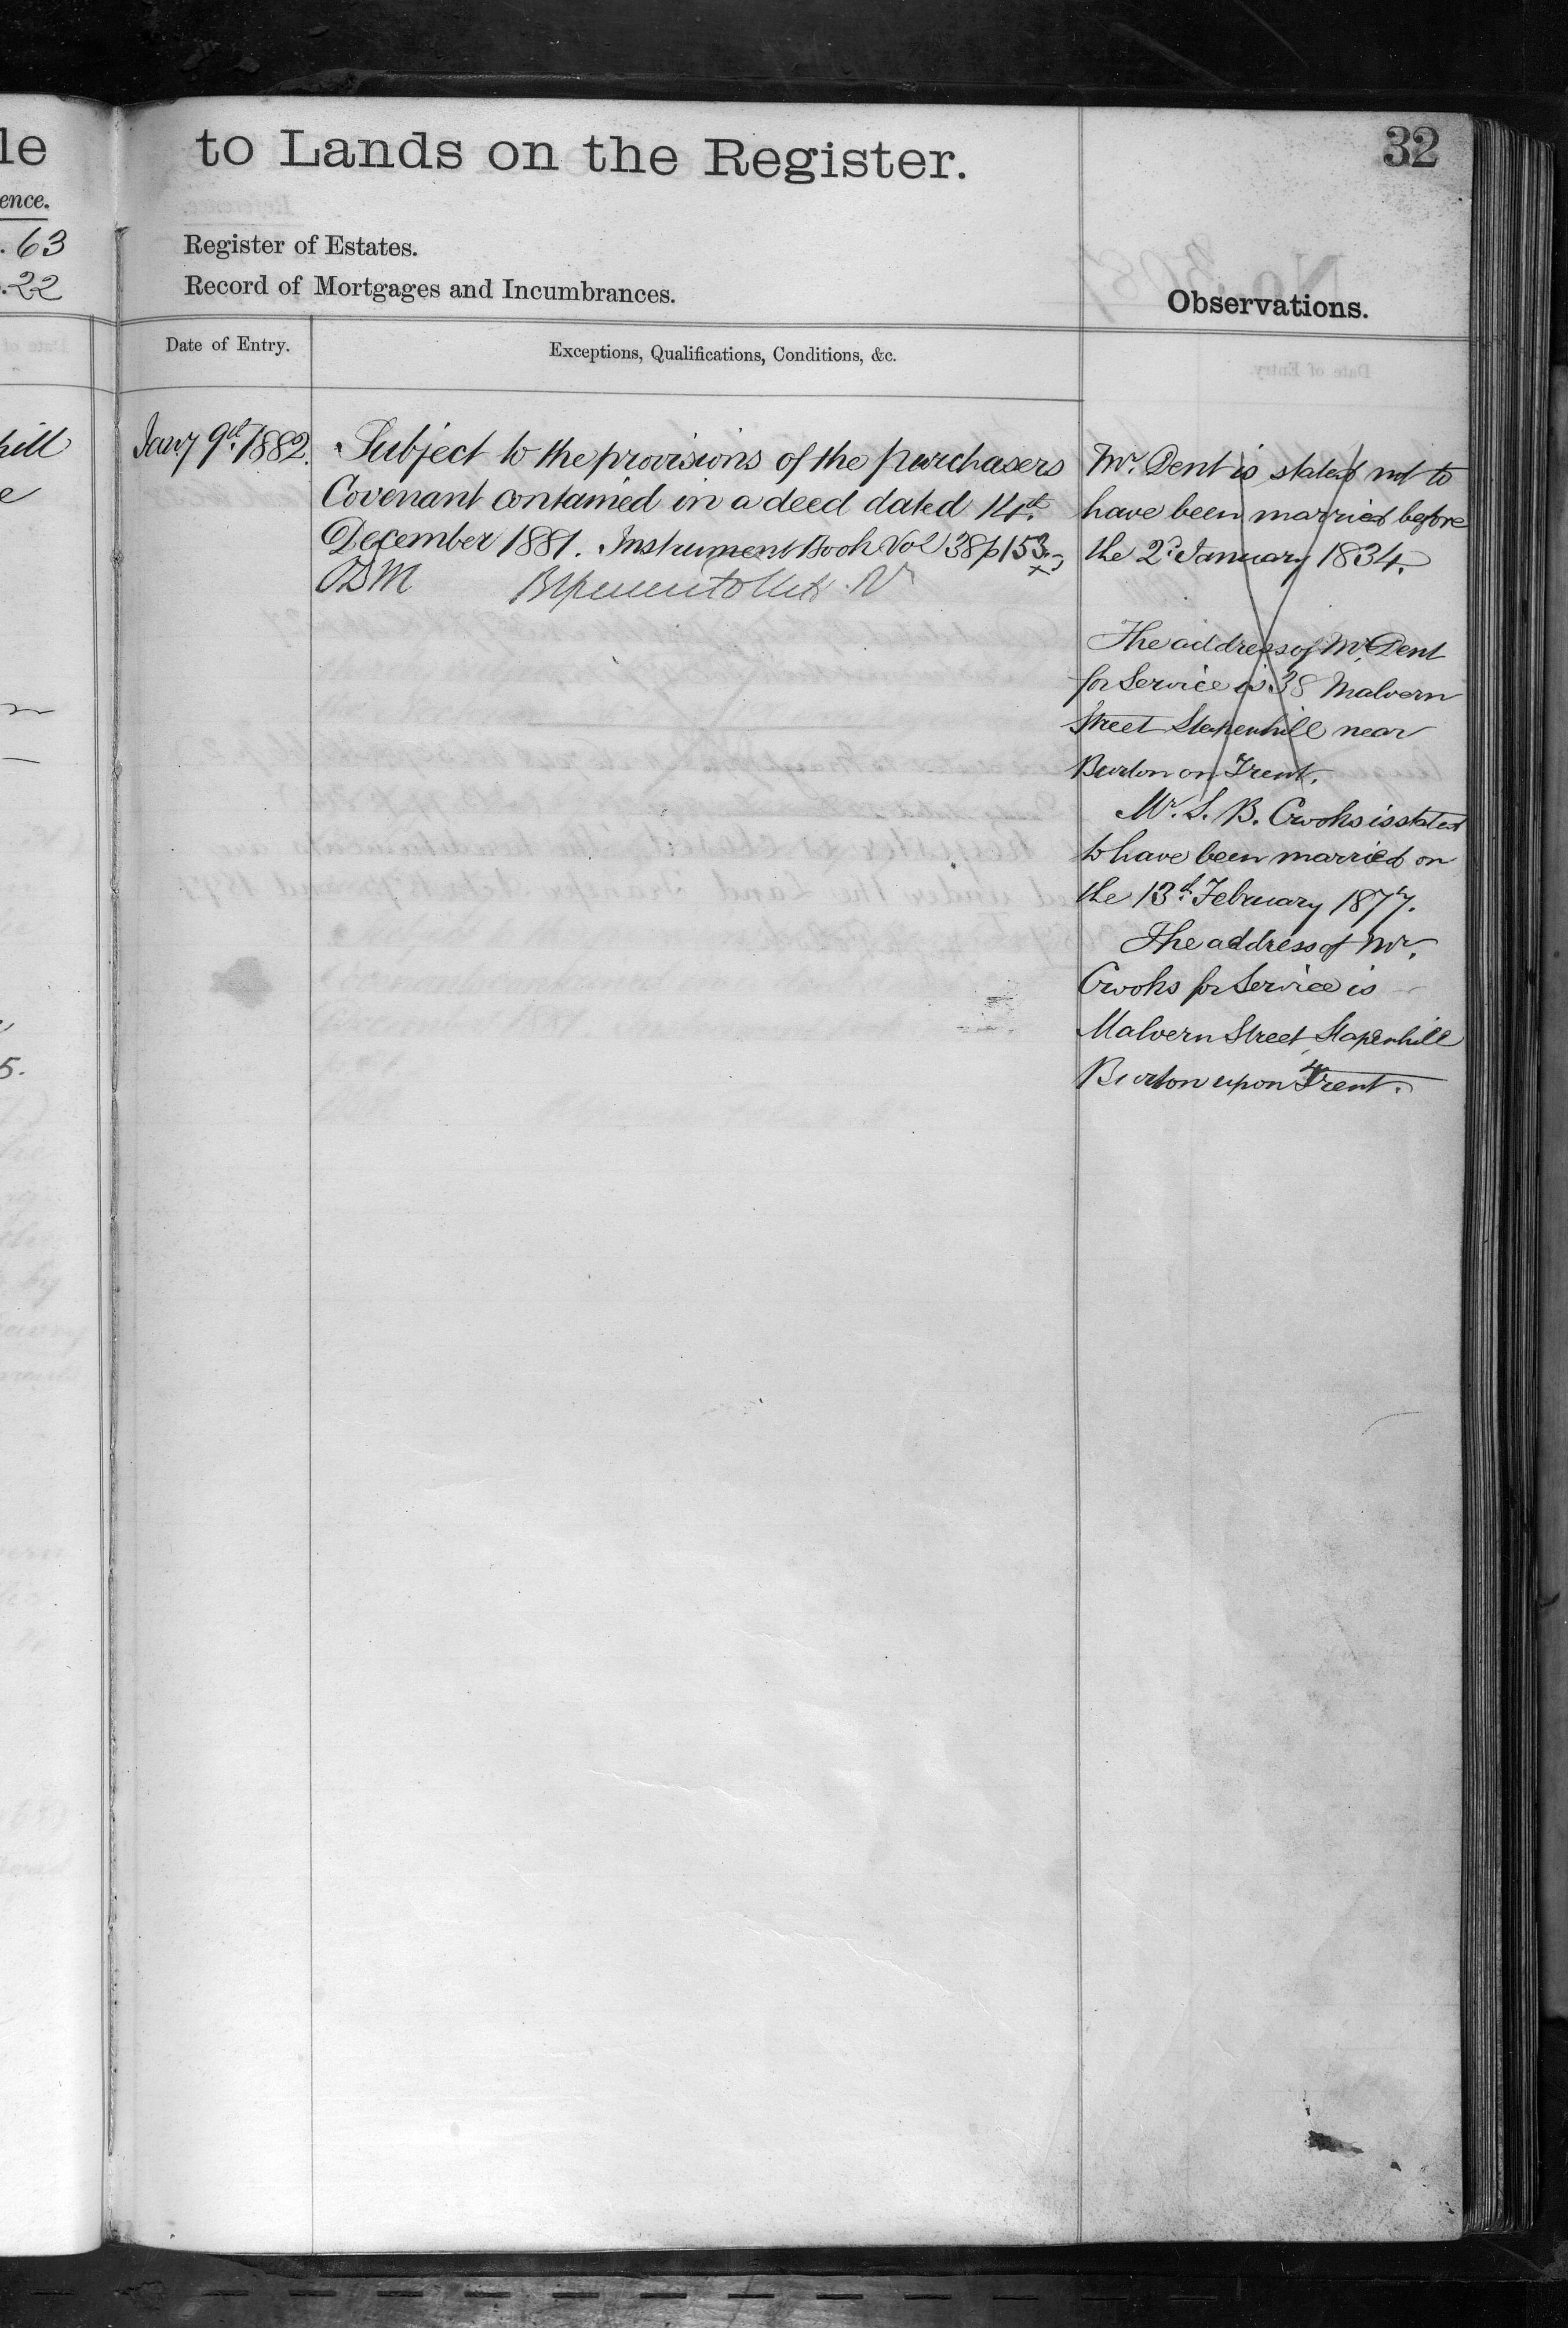 le
to Lands on the Register.
32
ence.
. 63
Register of Estates.
.22
Record of Mortgages and Incumbrances.
Observations.
Date of Entry.
Exceptions, Qualifications, Conditions, &c.
hill
e
5.
Jany 9th 1882.
Subject to the provisions of the purchasers
Covenant contained in a deed dated 14th
December 1881. Instrument Book Vol 38 p 153.
Mr. Dent is stated not to
have been married before
the 2d January 1834.
The address of Mr. Dent
for Service is 38 Malvern
Street Stapenhill near
Burton on Trent.
Mr. S. B. Crooks is stated
to have been married on
the 13th February 1877.
The address of Mr.
Crooks for Service is
Malvern Street, Stapenhill
Burton upon Trent.